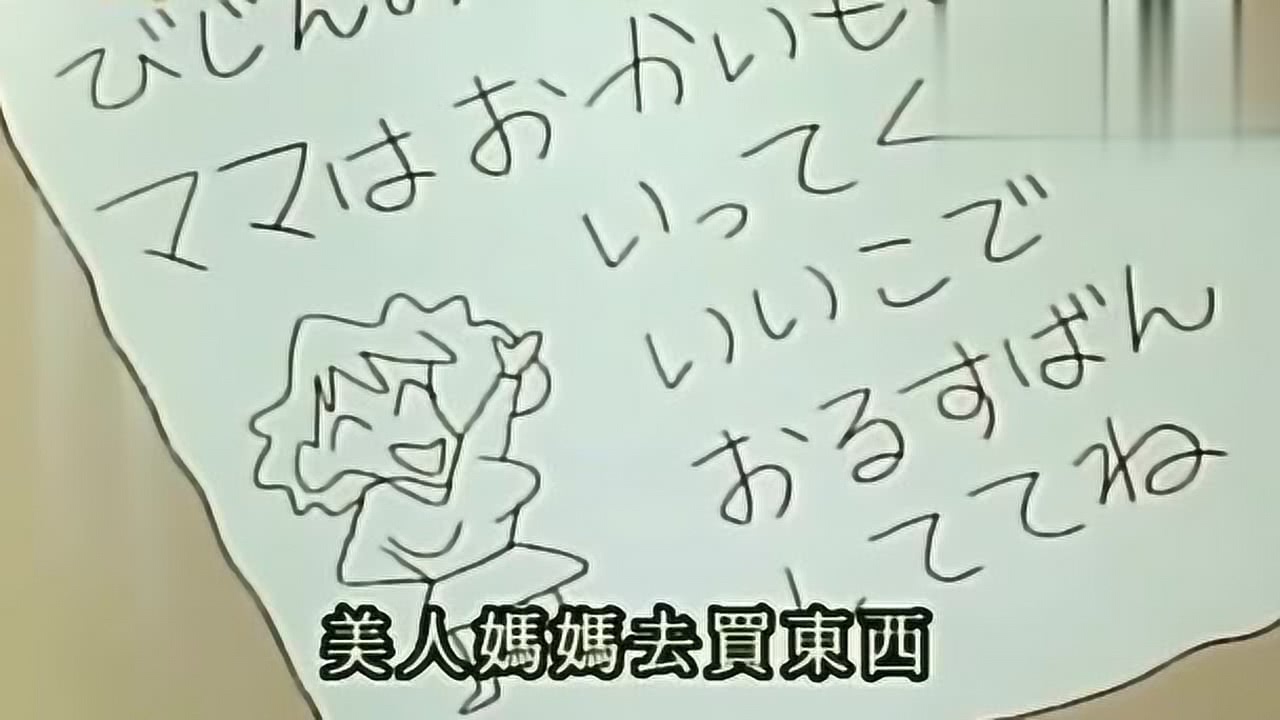 びじんの
ママはおかいも
いってく
いいこで
おるすばん
しててね
美人媽媽去買東西